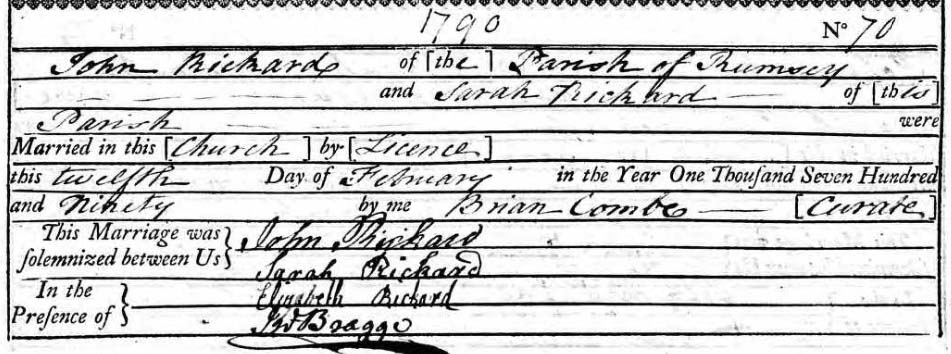 1790 No 70
John Rickard of [the] Parish of Rumsey
and Sarah Rickard of [this]
Parish were
Married in this [Church] by [Licence]
this twelfth Day of February in the Year One Thousand Seven Hundred
and Ninety by me Brian Combe [Curate]
This Marriage was solemnized between Us } John Rickard
Sarah Rickard
In the Presence of } Elizabeth Rickard
Bragge